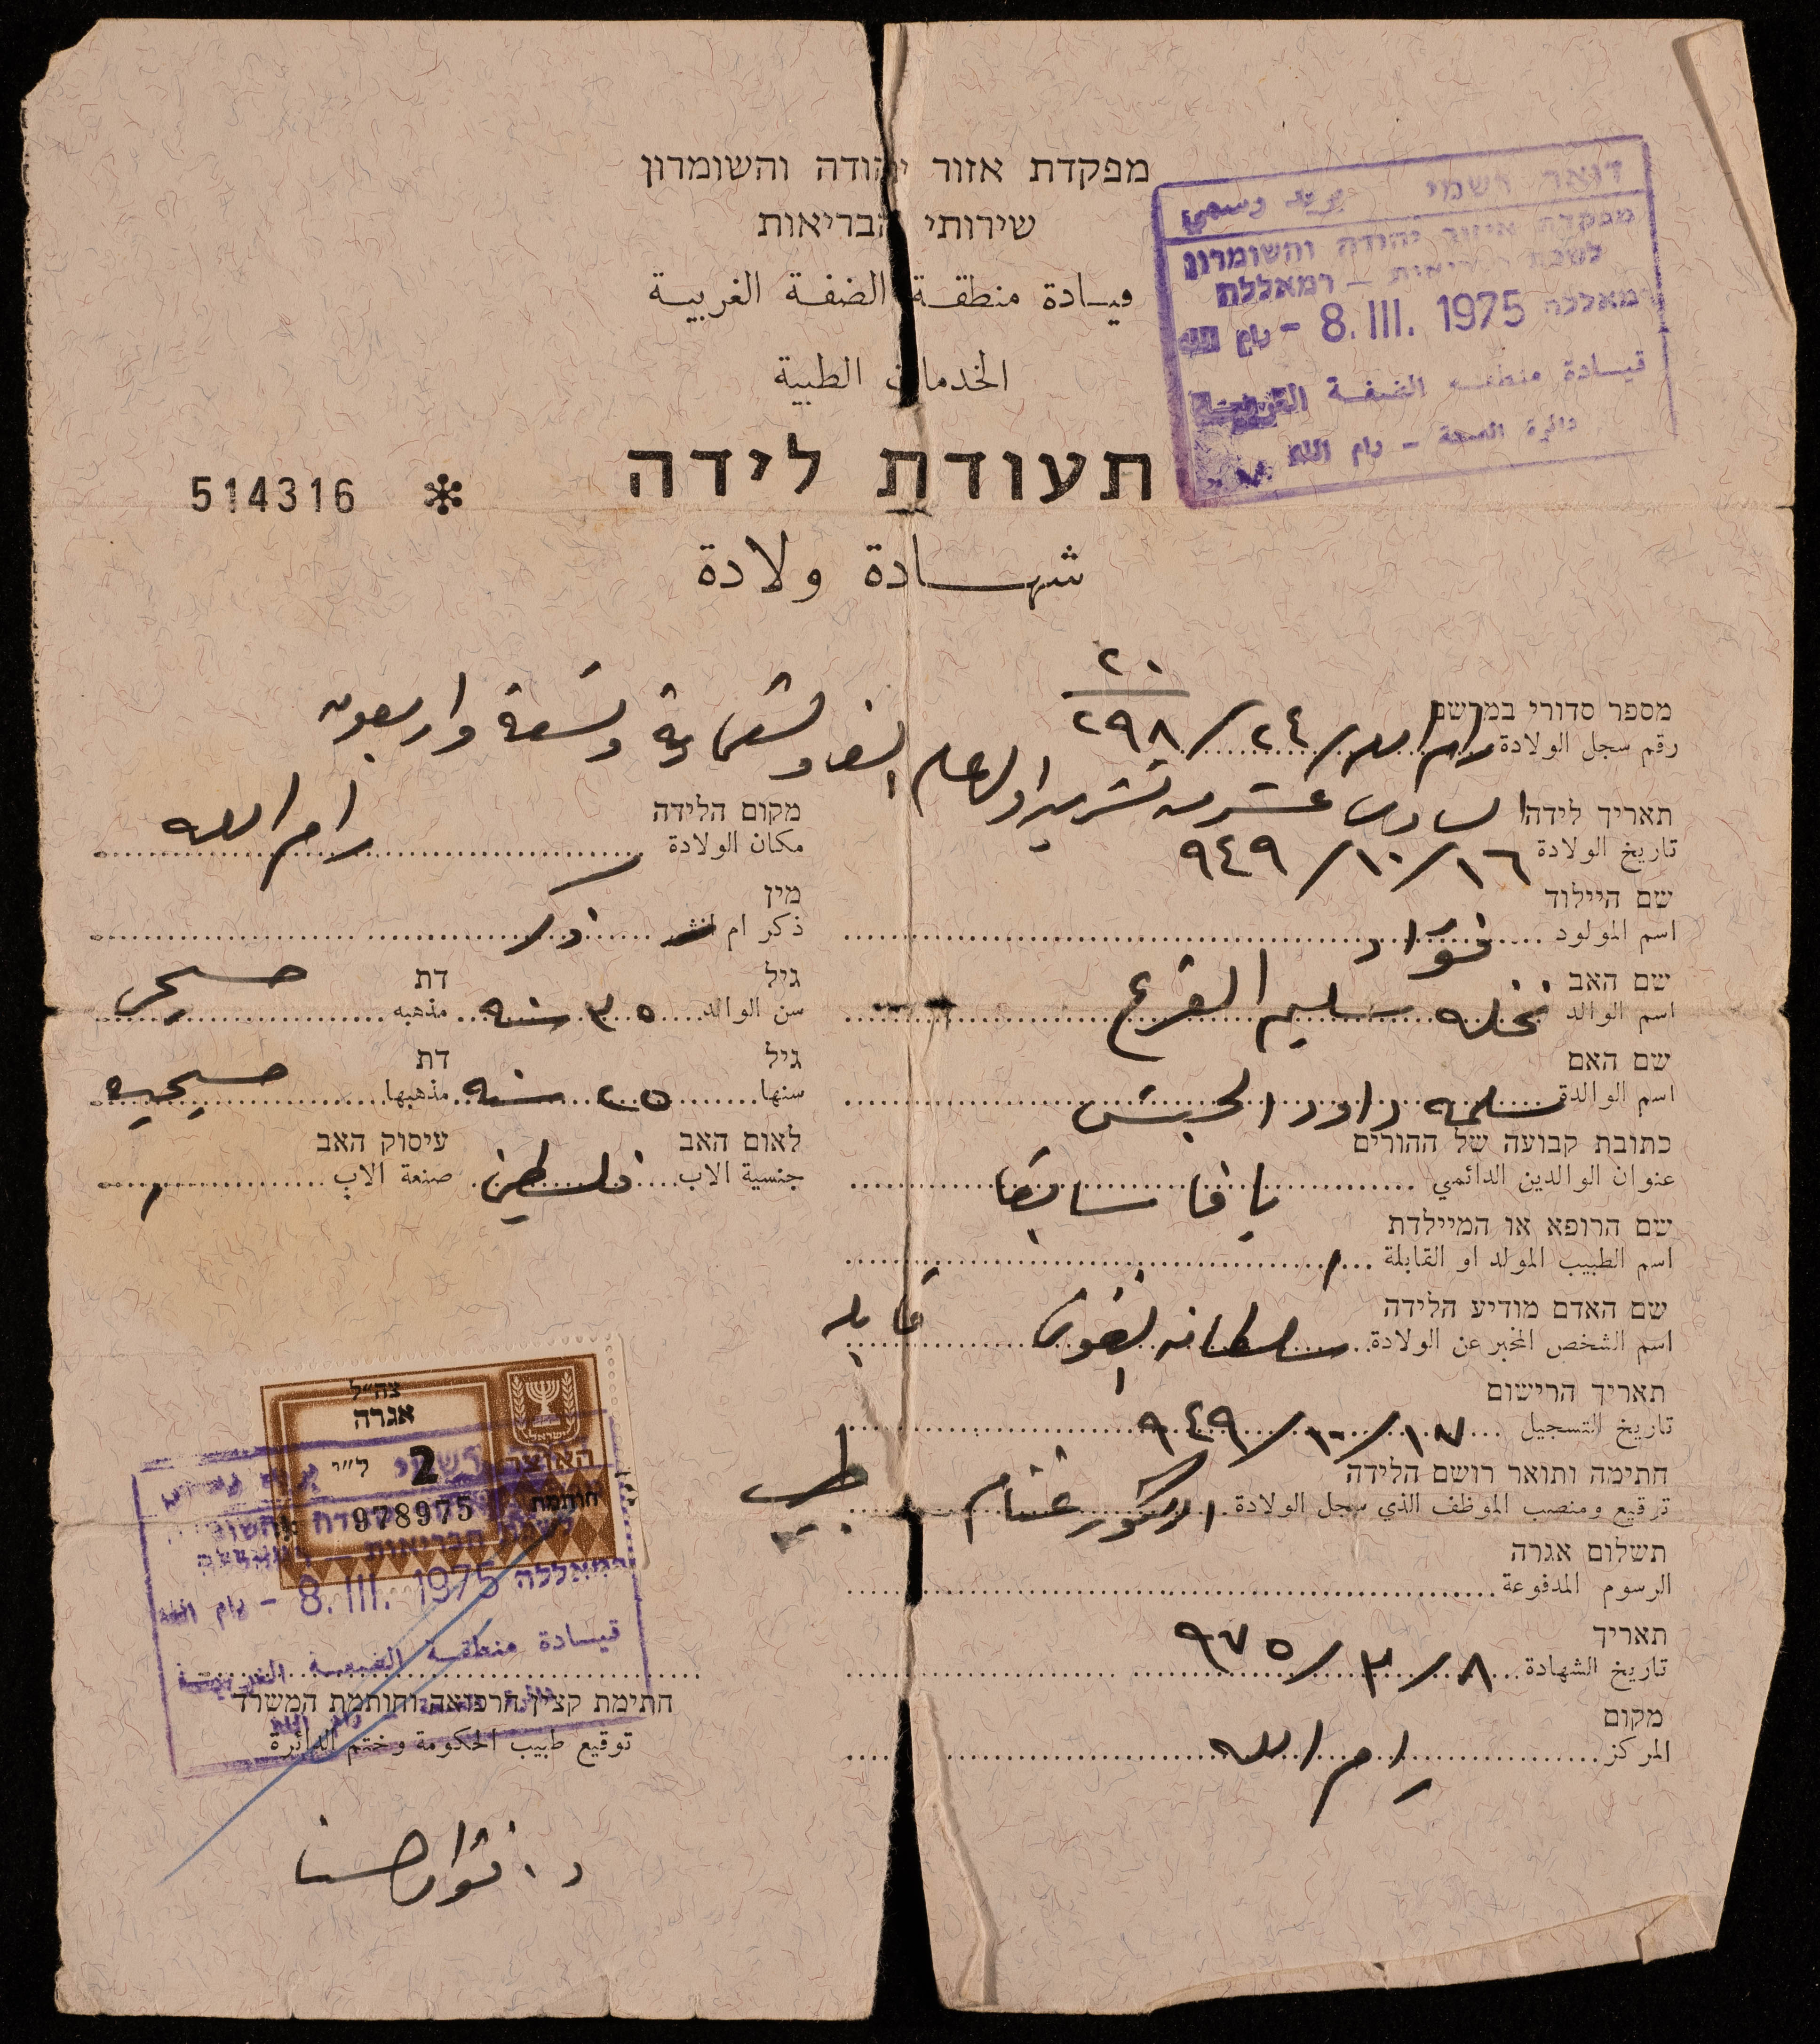 מפקדת אזור יהודה והשומרון
שירותי הבריאות
قيادة منطقة الضفة الغربية
الخدمات الطبية
דואר רשמי بريد رسمي
מפקדת איזור יהודה והשומרון
לשכת הבריאות – רמאללה
רמאללה 8. III. 1975 – رام الله
قيادة منطقة الضفة الغربية
دائرة الصحة – رام الله
תעודת לידה
514316 *
شهادة ولادة
מספר סדורי במרשם
رقم سجل الولادة رام الله / ٢٤ / ٢٩٨
٢٠
תאריך לידה
تاريخ الولادة السادس عشر من تشرين اول عام الف وتسعماية وتسعة واربعون
١٦ / ١٠ / ٩٤٩
מקום הלידה
مكان الولادة رام الله
שם היילוד
اسم المولود فؤاد
מין
ذكر ام انثى ذكر
שם האב
اسم الوالد نخله سليم القرع
גיל
سن الوالد ٣٥ سنه
דת
مذهبه مسيحي
שם האם
اسم الوالدة سلمه داود الحبش
גיל
سنها ٢٥ سنه
דת
مذهبها مسيحيه
כתובת קבועה של ההורים
عنوان الوالدين الدائمي يافا سابقا
לאום האב
جنسية الاب فلسطيني
עיסוק האב
صنعة الاب
שם הרופא או המיילדת
اسم الطبيب المولد او القابلة
שם האדם מודיע הלידה
اسم الشخص المخبر عن الولادة سلطانه قابله
תאריך הרישום
تاريخ التسجيل ١٧ / ١٠ / ٩٤٩
חתימה ותואר רושם הלידה
توقيع ومنصب الموظف الذي سجل الولادة الدكتور غنام طبيب
תשלום אגרה
الرسوم المدفوعة
תאריך
تاريخ الشهادة ٨ / ٣ / ٩٧٥
מקום
المركز رام الله
צה״ל
אגרה
ישראל
2 ל״י
האוצר
חותמת
978975
רמאללה 8. III. 1975 – رام الله
قيادة منطقة الضفة الغربية
חתימת קצין הרפואה וחותמת המשרד
توقيع طبيب الحكومة وختم الدائرة